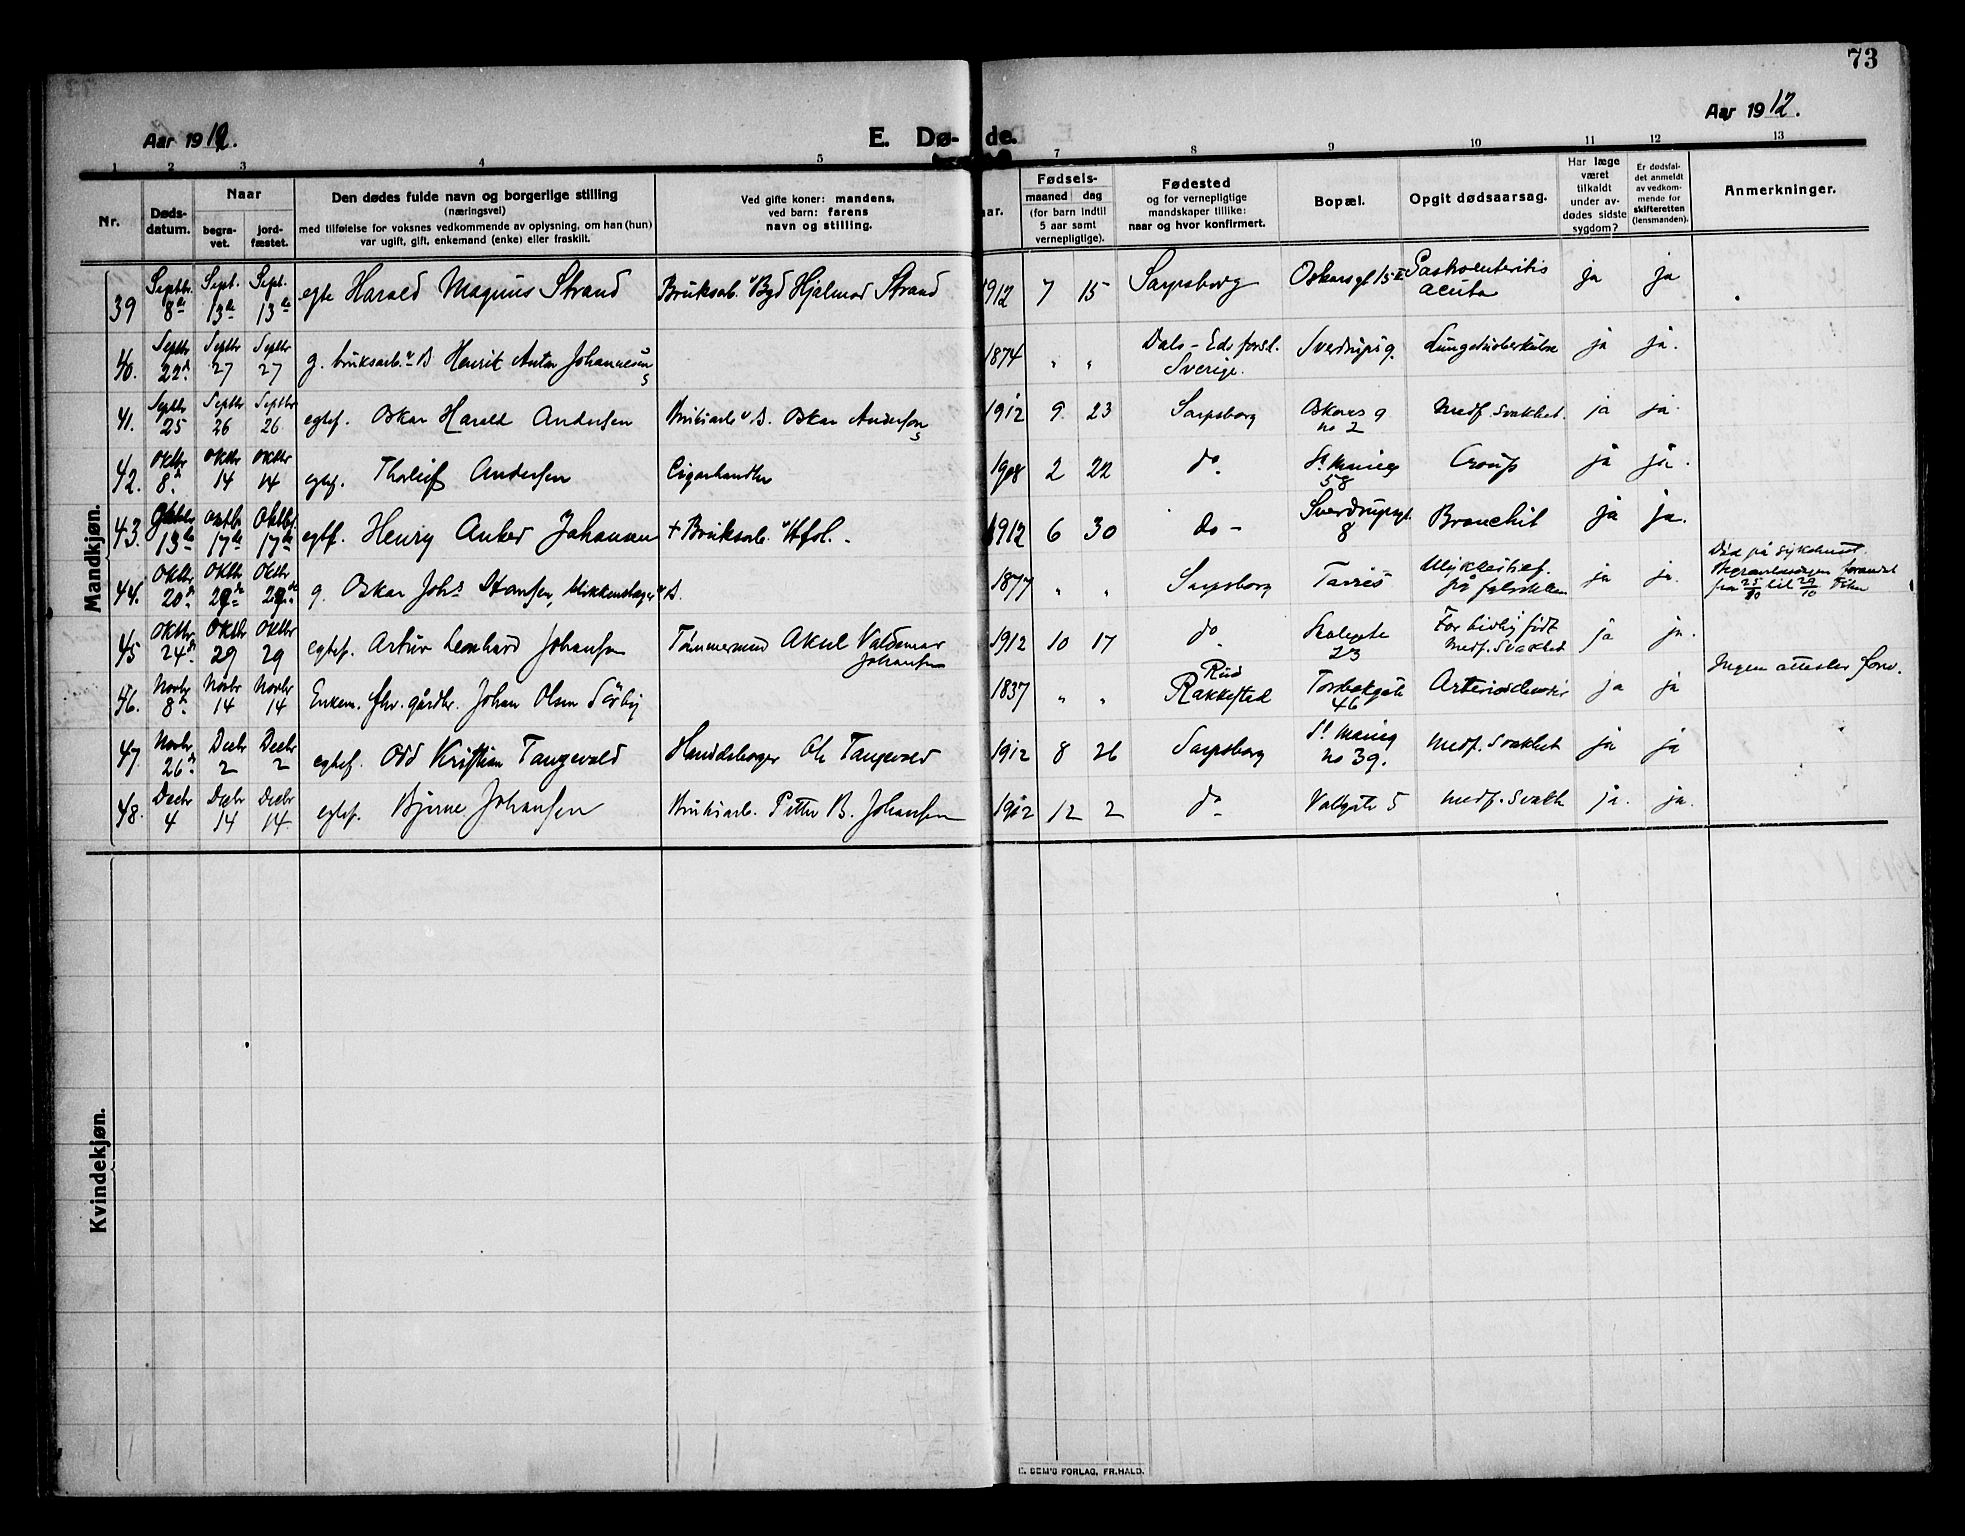 73
Aar 1912.
E. Dø- de.
Aar 1912.
1 2 3 4 5 7 8 9 10 11 12 13
Nr.
Døds-
datum.
Naar
begra-
vet.
jord-
fæstet.
Den dødes fulde navn og borgerlige stilling
(næringsvei)
med tilføielse for voksnes vedkommende av oplysning, om han (hun)
var ugift, gift, enkemand (enke) eller fraskilt.
Ved gifte koner: mandens,
ved barn: farens
navn og stilling.
aar.
Fødsels-
maaned dag
(for barn indtil
5 aar samt
vernepligtige).
Fødested
og for vernepligtige
mandskaper tillike:
naar og hvor konfirmert.
Bopæl.
Opgit dødsaarsag.
Har læge
været
tilkaldt
under av-
dødes sidste
sygdom?
Er dødsfal-
det anmeldt
av vedkom-
mende for
skifteretten
(lensmanden).
Anmerkninger.
Mandkjøn.
39 Septbr. 8de Sept. 13de Sept. 13de egte Harald Magnus Strand Bruksarb. Hjalmar Strand 1912 7 15 Sarpsborg Oskarsgt 15 Gastroenteritis acuta ja ja
40. Septbr 22 Septbr 27 Septbr 27 g. bruksarb. Henrik Anton Johannesen 1874 " " Dals-Eds forsl. Sverige. Sverdrupsg. Lungetuberkulose ja ja.
41. Septbr 25 Septbr 26 Septbr 26 egtef. Oskar Harald Andersen Bruksarb Oskar Andersen 1912 9 23 Sarpsborg Oskars g no 2 Medf. svakhet ja ja.
42. Oktbr 8. Oktbr 14 Oktbr 14 egtef. Thorleif Andersen Cigarhandler 1908 2 22 do St. Marieg 58 Croup ja ja.
43. Oktbr 13de Oktbr 17de Oktbr 17de egtf. Henry Anker Johansen + Bruksarb. 1912 6 30 do - Sverdrupsgt. 8 Bronchit ja ja.
44. Oktbr 20 Oktbr 29 Oktbr 29 g. Oskar Johs Hansen, 1877 " " Sarpsborg ja ja. Død på sykehuset. Begravelsesdagen forandret fra 25/10 til 29/10
45 Oktbr 24 Oktbr 29 Oktbr 29 egtef. Artur Leonhard Johansen Tømmermand Aksel Valdemar Johansen 1912 10 17 do Skolegate 23 For tidlig født Medf. svakhet ja ja.
46. Novbr 8 Novbr 14 Novbr 14 Enkem. fhv. gårdbr. Johan Olsen Sørby 1837 " " Rud Rakkestad Torsbekgate 46 Arteriosclerose ja ja Ingen attester forev.
47. Novbr 26 Decbr 2 Decbr 2 egtef. Odd Kristian Tangevald Ole Tangevald 1912 8 26 Sarpsborg St. Marieg no 39. Medf. svakhet ja ja
48. Decbr 4 Decbr 14 Decbr 14 egtef. Bjarne Johansen Bruksarb. Petter B. Johansen 1912 12 2 do Valsgate 5 Medf. svakh ja. ja.
Kvindekjøn.
E. SEM'S FORLAG, FR.HALD.